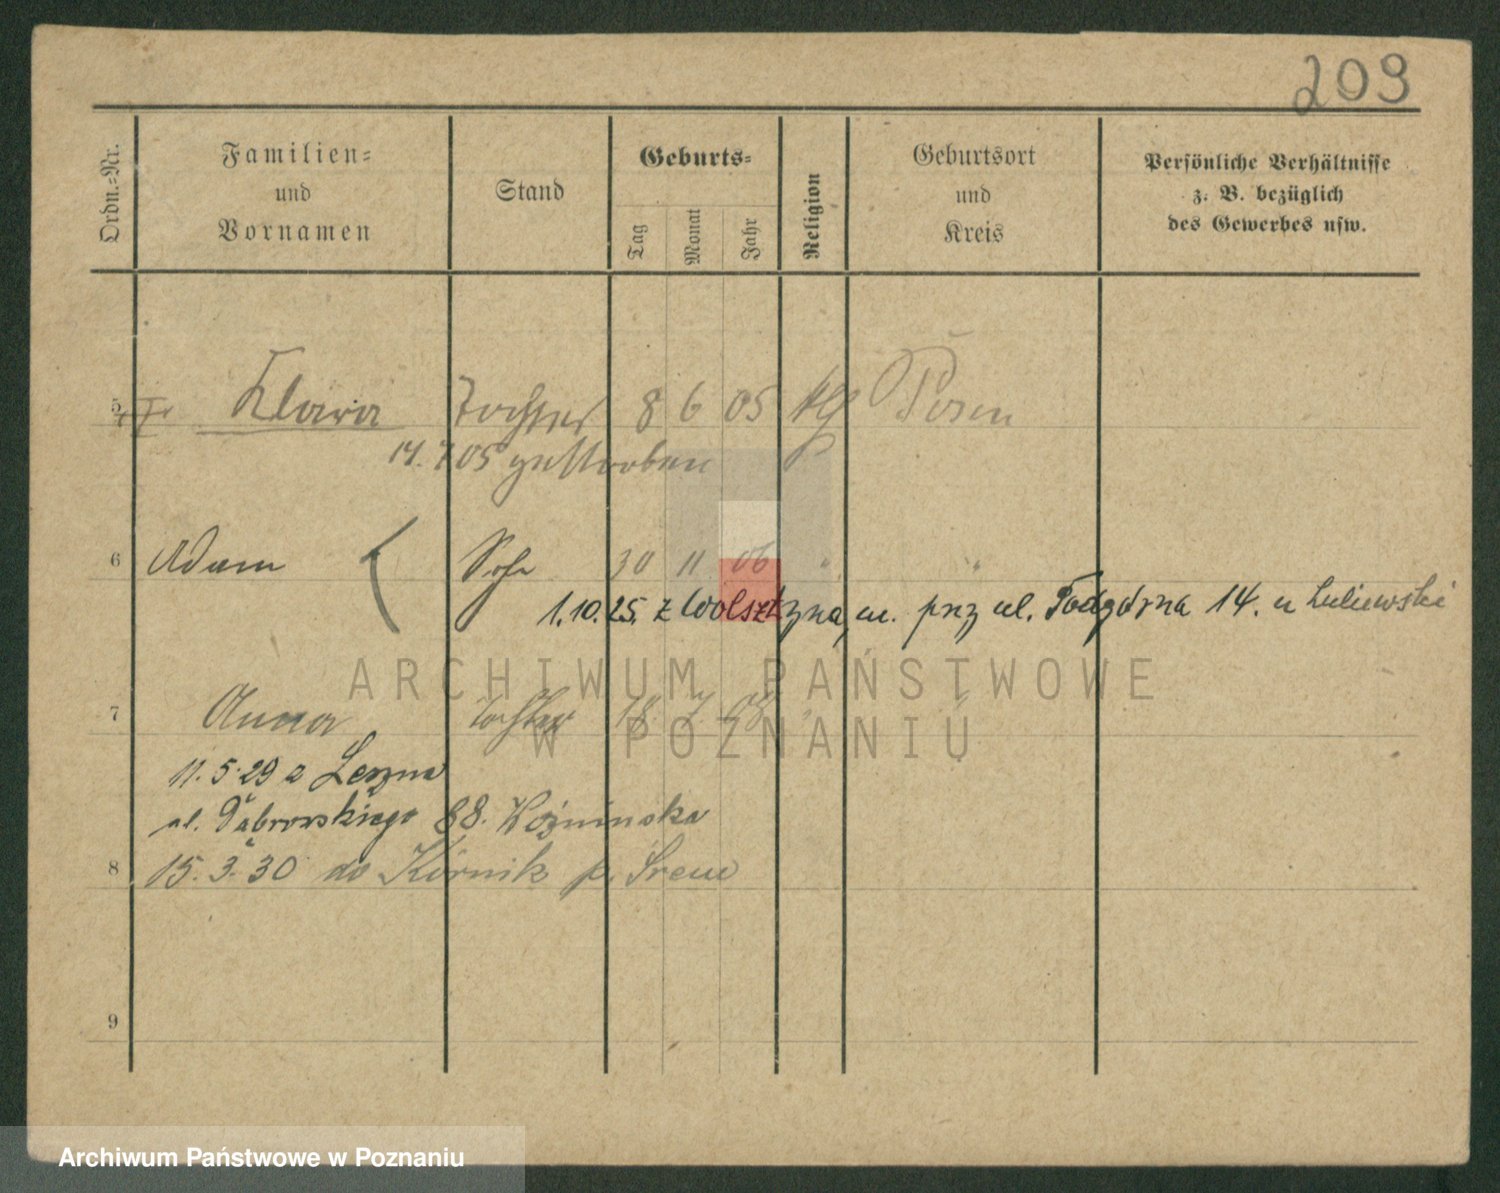 209
Ordn.-Nr.
Familien-
und
Vornamen
Stand
Geburts-
Tag
Monat
Jahr
Religion
Geburtsort
und
Kreis
Persönliche Verhältnisse
z. B. bezüglich
des Gewerbes usw.
5 Klara Tochter 8 6 05 Posen
7 05 gestorben
6 Adam Sohn 30 11 06 " "
1.10.25. z Wolsztyna, m. prz ul. Podgórna 14. u
ARCHIWUM PAŃSTWOWE
W POZNANIU
7 Anna Tochter 18 7 08
11.5.29 z Leszna
ul. Dąbrowskiego 88.
8 15.3.30 do Kórnik p. Śrem
9
Archiwum Państwowe w Poznaniu